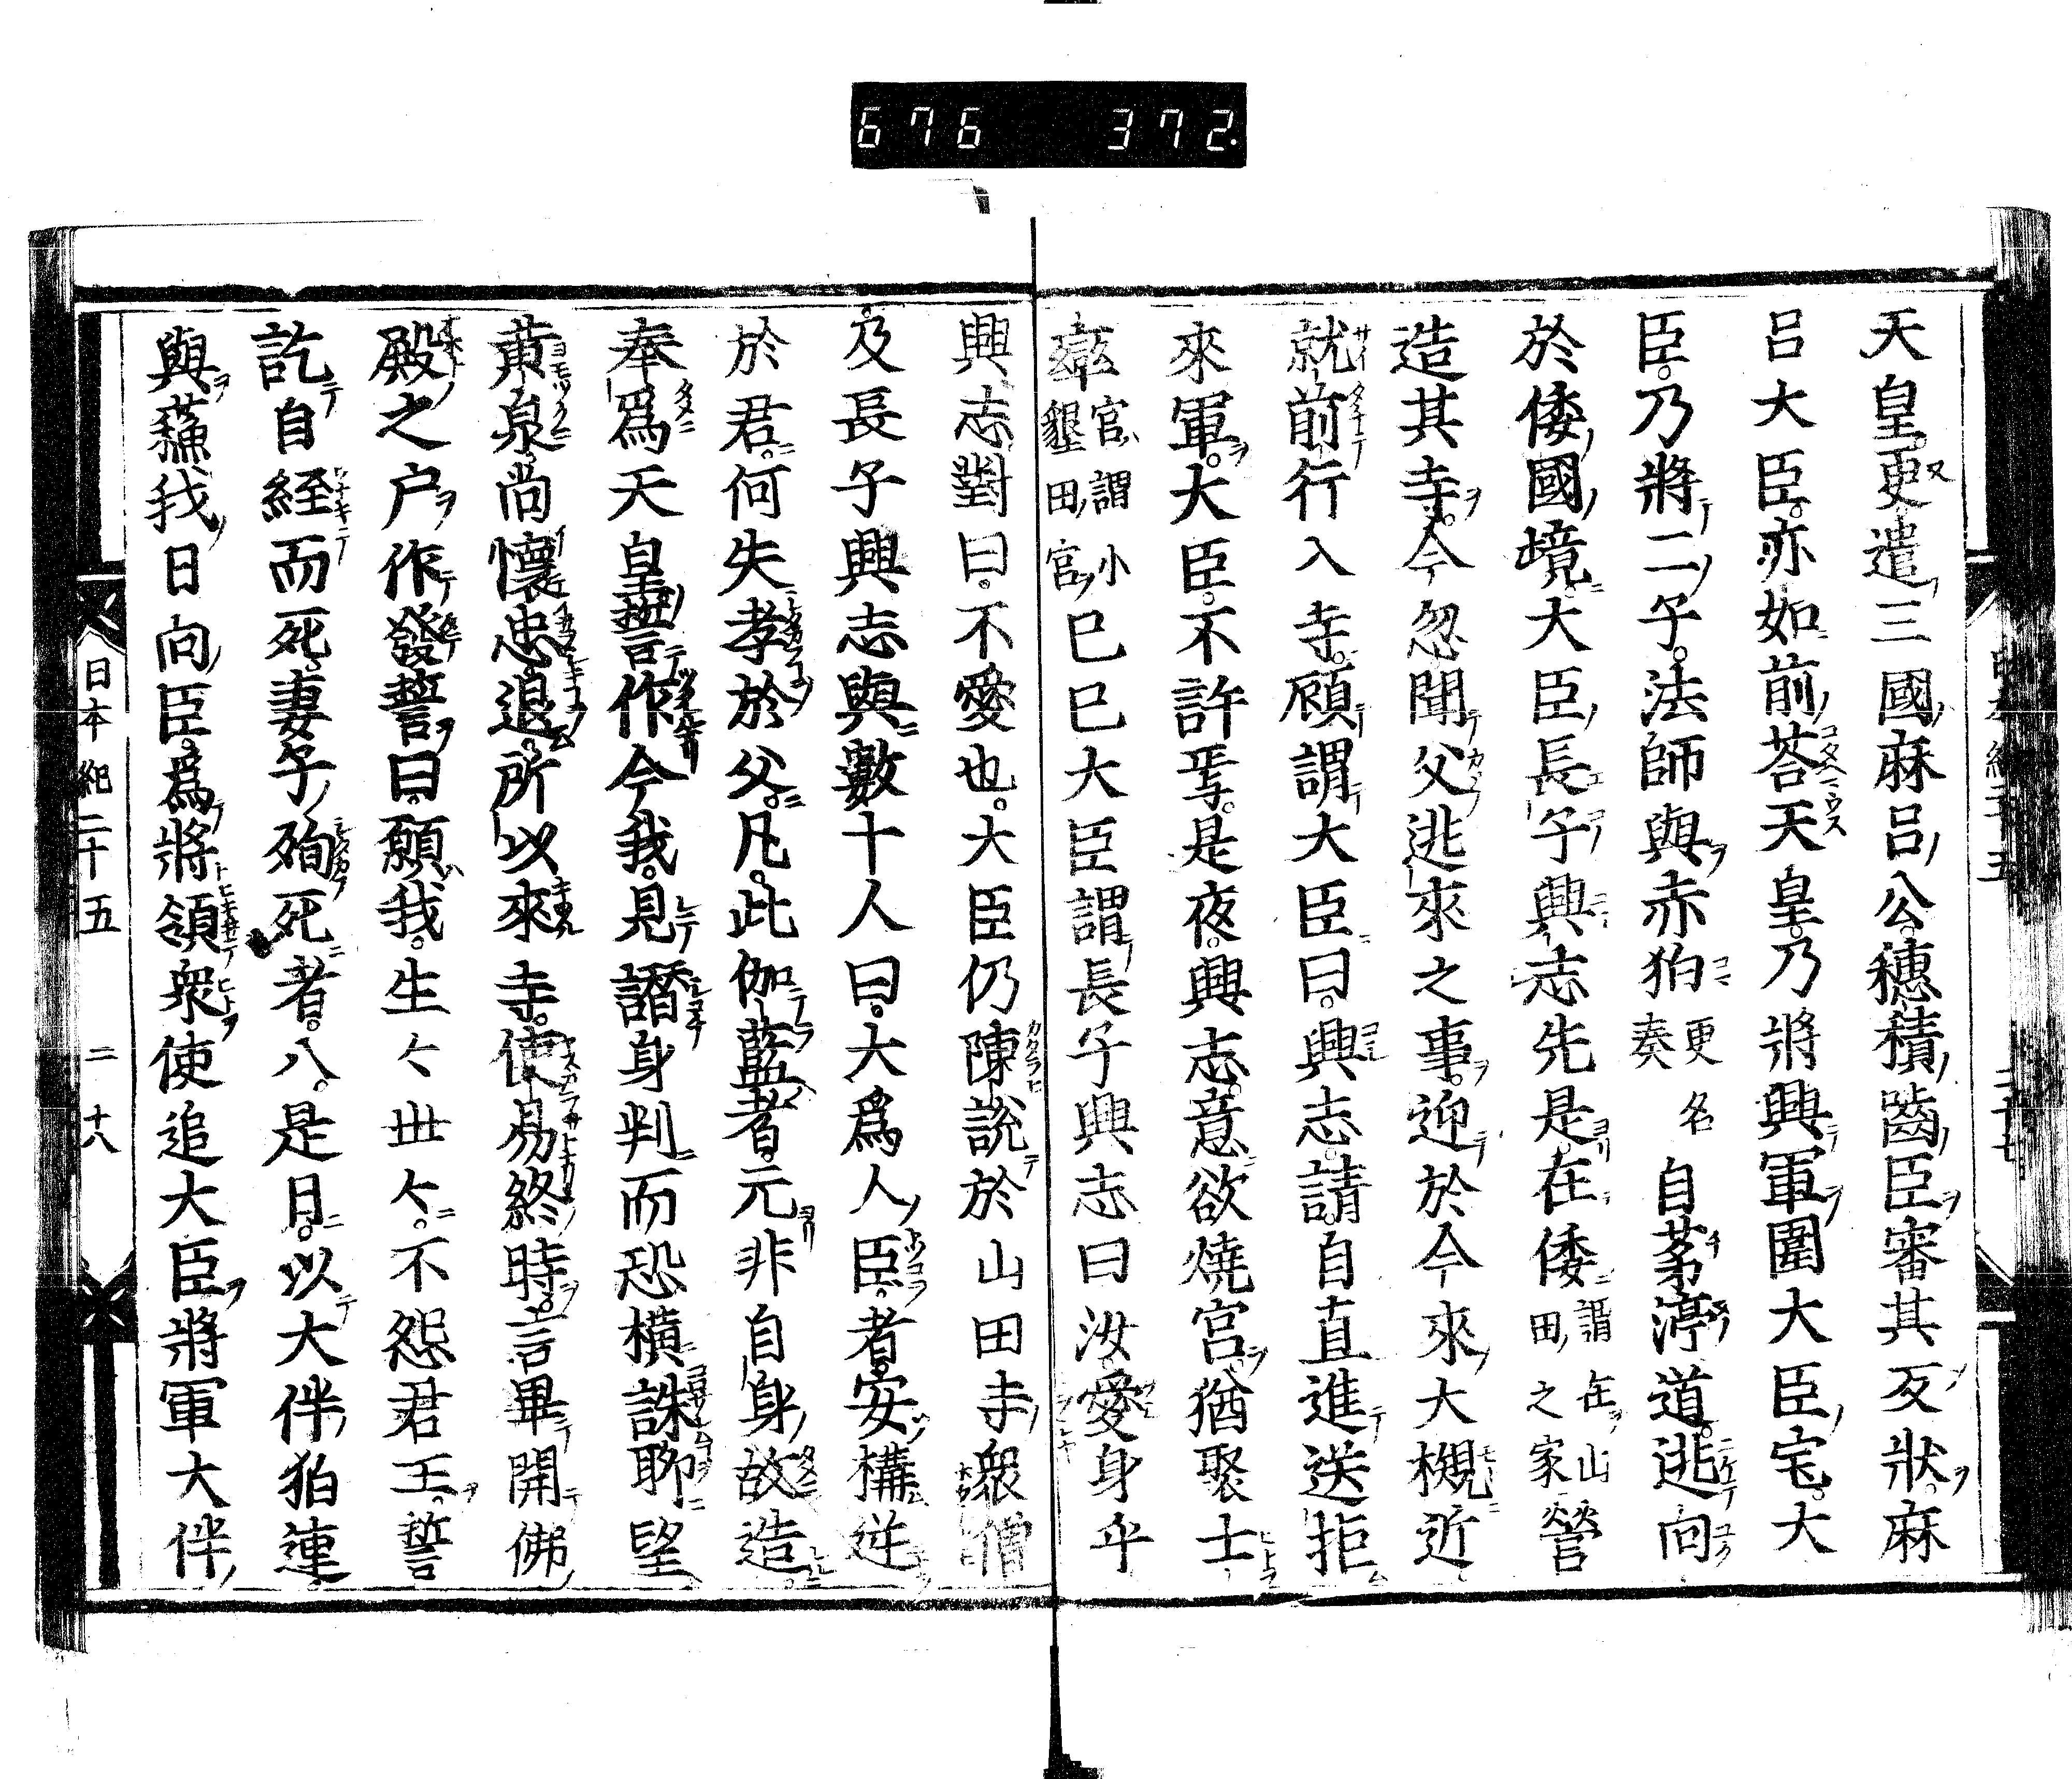 676 372.
天皇。更遣三國麻呂公。穗積齒臣審其反狀。麻
呂大臣。亦如前荅天皇。乃將興軍圍大臣宅。大
臣。乃將二子。法師與赤狛更名秦自茅渟道。逃向
於倭國境。大臣長子興志先是。在倭謂在山田之家營
造其寺。今忽聞父逃來之事。迎於今來大槻近
就前行入寺。顧謂大臣曰。興志。請自直進送拒
來軍。大臣。不許焉。是夜。興志。意欲燒宮。猶聚士
卒官謂小墾田宮己巳大臣謂長子興志曰汝愛身乎
興志對曰。不愛也。大臣仍陳說於山田寺衆僧
及長子興志與數十人曰。大爲人臣。者。安構逆
於君。何失孝於父。凡。此伽藍者。元非自身故造。
奉爲天皇誓作今我。見譖身判而恐橫誅聊望
黄泉尚懷忠退。所以來寺。使易終時。言畢開佛
殿之户作發誓曰。願我。生々世々。不怨君王。誓
訖自經而死。妻子殉死者。八。是月。以大伴狛連
與蘇我日向臣。爲將領衆使追大臣將軍大伴
日本紀二十五 二十八